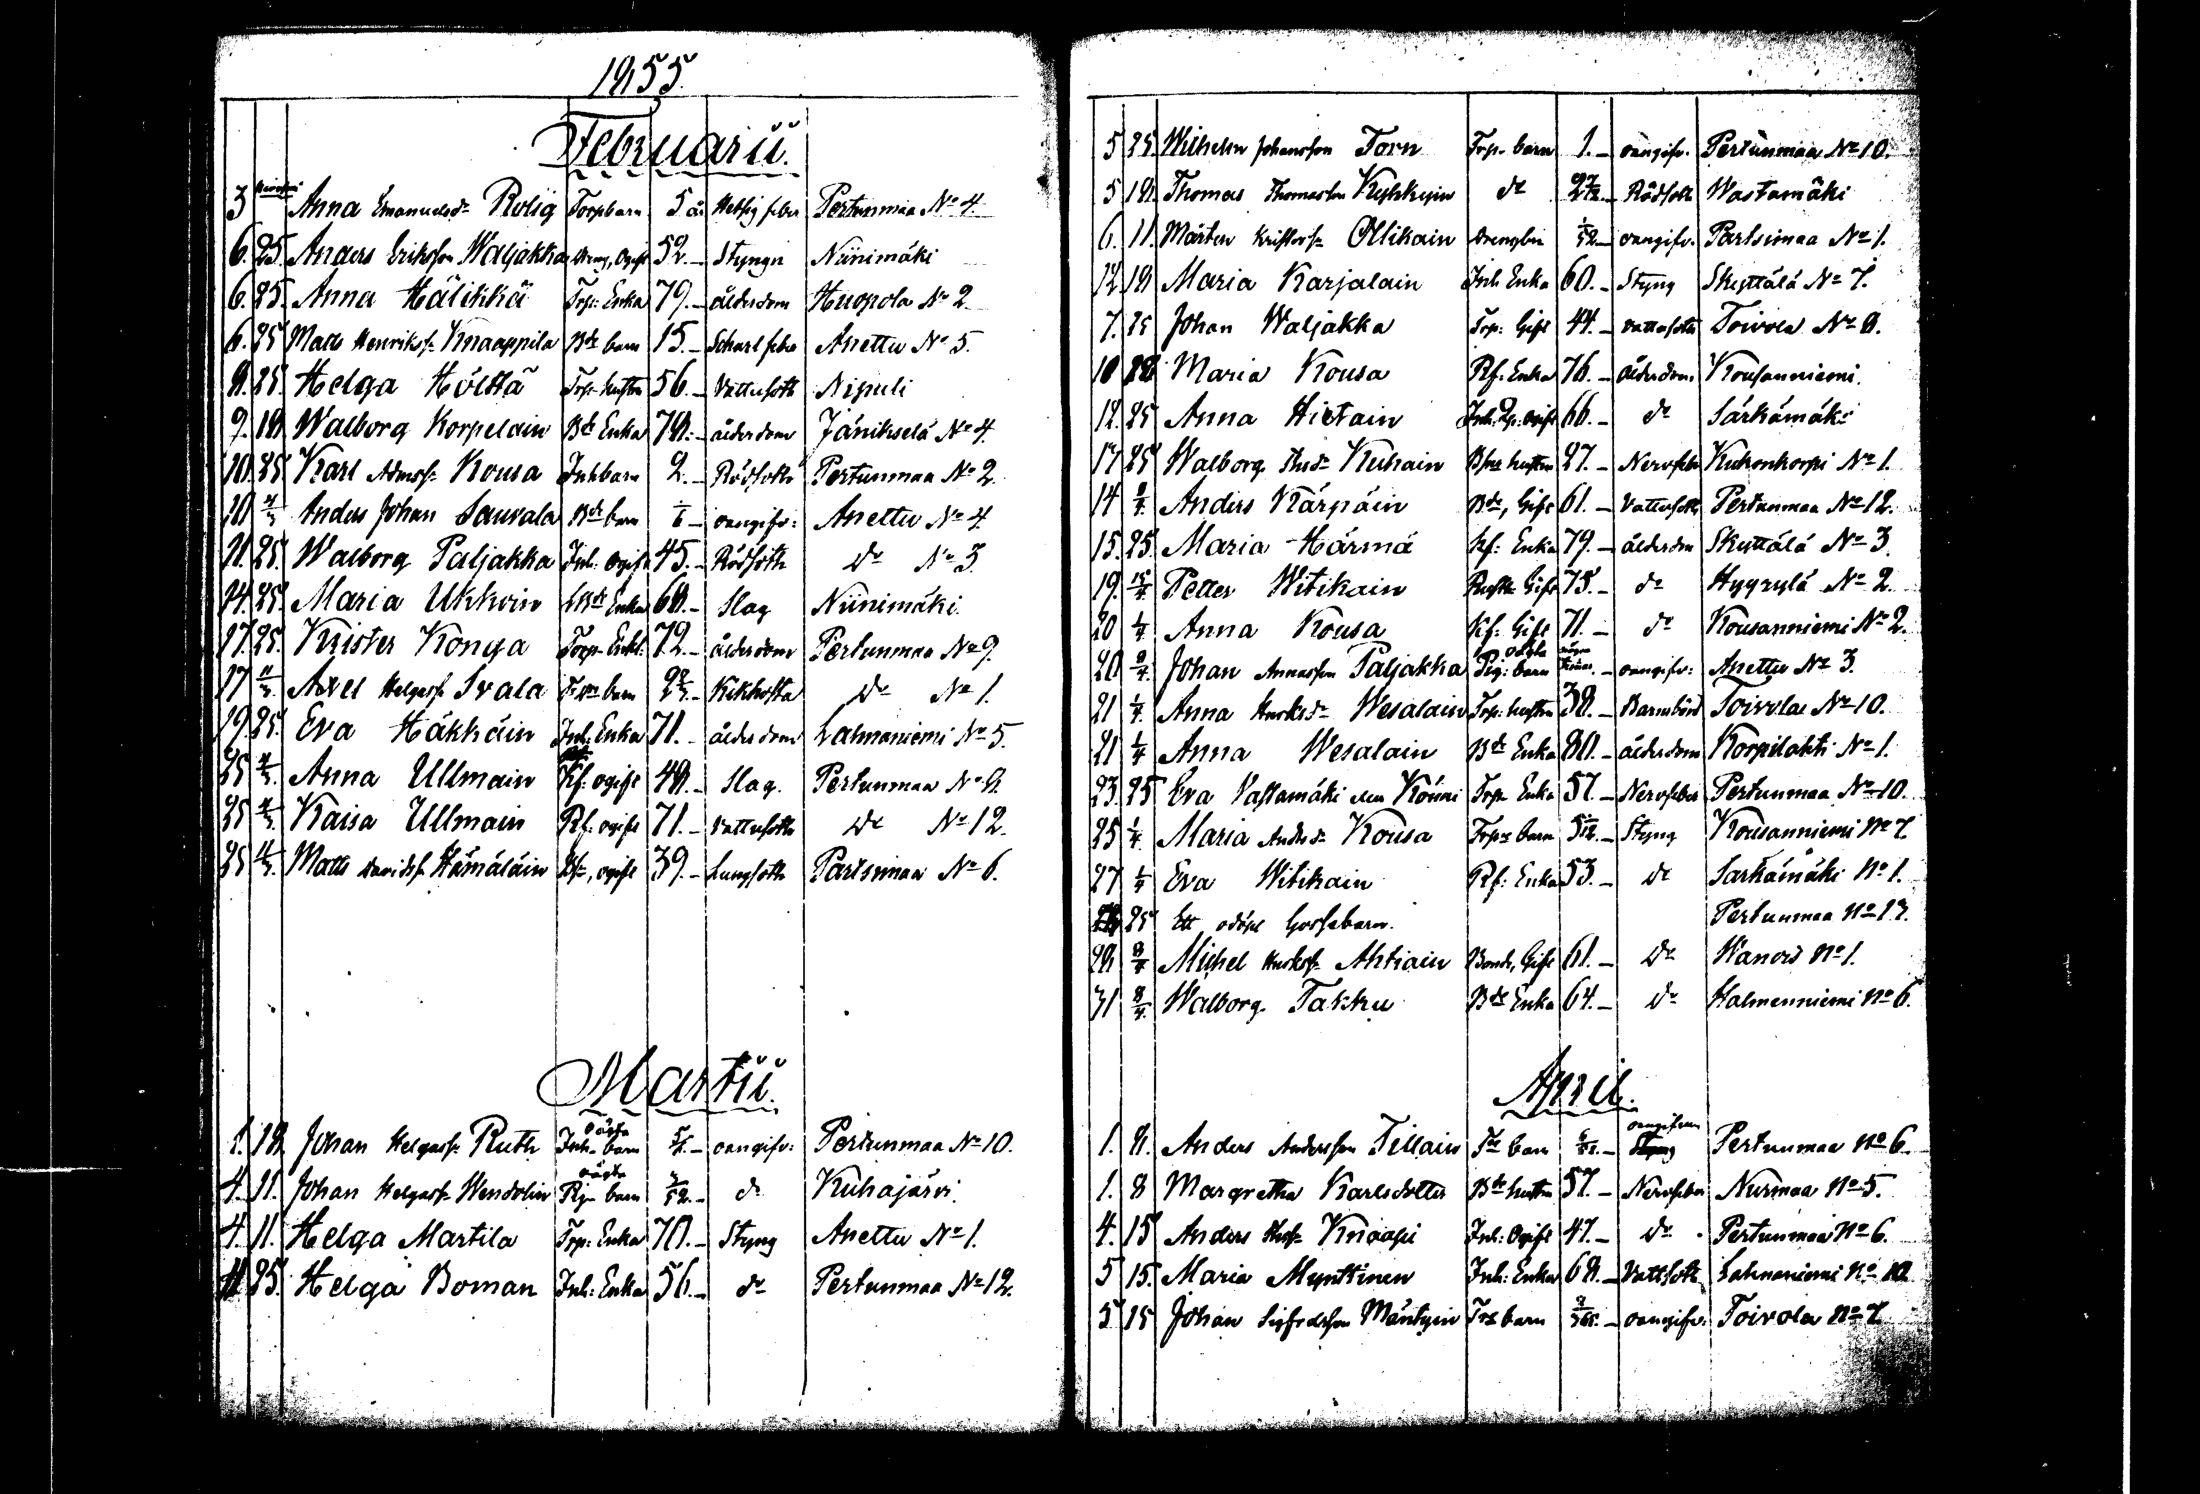 1855.
Februarii.
3 Anna Emanuelsdr Rolig Torpbarn 5 år Hetsig feber Pertunmaa No 4.
6. 25. Anders Eriksson Waljakka 52.- Styngn Niinimäki
6. 25. Anna Hälikkä Trp: Enka 79.- ålderdom Huopola No 2
6. 25 Matts Henriksf: Knaappila Bde barn 15.- Scharl feber Anettu No 5.
8. 25. Helga Hölttä Trp hustru 56.- Vattusott Nipuli
9. 18 Walborg Korpelain Bde Enka 78.- ålderdom Jänikselä No 4.
10. 25 Karl Adamsf: Kousa Inhbarn 2.- Rödsott Pertunmaa No 2.
10 4/3 Anders Johan Sauvala Bde barn 1/6 - oangifv: Anettu No 4
11. 25. Walborg Paljakka Inh: ogift 45.- Rödsott do No 3.
14. 25. Maria Ukkoin Bde Enka 68.- Slag Niinimäki.
17. 25. Krister Konga Torp- Enkl: 72.- ålderdom Pertunmaa No 9.
17 4/3. Axel Helgasf: Svala barn Kikhosta do No 1.
19. 25. Eva Häkkäin Inh: Enka 71.- ålderdom Lahnaniemi No 5.
25 4/3. Anna Ullmain Rf: ogift 48.- Slag. Pertunmaa No 8
25 4/3. Kaisa Ullmain Rf: ogift 71.- Vattusott do No 12.
25 4/3. Matts Davidsf: Hämäläin ogift 39.- Lungsott Partsimaa No 6.
Martii.
1. 18 Johan Helgasf: Ruth oägta Inh- barn oangifv: Pertunmaa No 10.
4. 11. Johan Helgasf: Wendolin oägta Pig- barn /52.- do Kuhajärvi.
4. 11. Helga Martila Trp: Enka 70.- Styng Anettu No 1.
25. Helga Boman Inh: Enka 56.- do Pertunmaa No 12.
5 25 Wilhelm Johansson Torn Trp- barn 1.- oangifv. Pertunmaa No 10.
5 18 Thomas Thomasson Kyhkyin do Rödsott Wastamäki
6. 11. Mårten Kristersf: Ollikain /52.- oangifv. Partsimaa No 1.
12. 18 Maria Karjalain Inh Enka 60.- Styng Skyttälä No 7.
7. 25 Johan Waljakka Trp: Gift 44.- Vattusott Toivola No 8.
10 Maria Kousa Rf: Enka 76.- ålderdom Kousanniemi.
12. 25 Anna Hietain ogift 66.- do Särkämäki
17 25 Walborg Kuhain hustru 27.- Nervfeber Kuhonkorpi No 1.
14 8/4. Anders Kärpäin Bde, Gift 61.- Vattusott Pertunmaa No 12.
15. 25. Maria Härmä Rf: Enka 79.- ålderdom Skyttälä No 3.
19. 15/4 Petter Witikain Gift 75.- do Hyyrylä No 2.
20 1/4 Anna Kousa Rf: Gift 71.- do Kousanniemi No 2.
20 8/4. Johan Annasson Paljakka oägta Pig: barn oangifv: Anettu No 3.
21 1/4. Anna Henriksdr Wesalain Trp: hustru 38.- Barnsbörd Toivola No 10.
21 1/4 Anna Wesalain Bde Enka 80.- ålderdom Korpilahti No 1.
23 25 Eva Vastamäki Trp- Enka 57.- Nervfeber Pertunmaa No 10.
25 1/4. Maria Andersdr Kousa Torpr barn Styng Kousanniemi No 7.
27 1/4 Eva Witikain Rf: Enka 53.- do Särkämäki No 1.
25 Ett odöpt Gossebarn. Pertunmaa No 17.
28 8/4 Michel Henriksf: Ahtiain Bonde, Gift 61.- do Wanois No 1.
31 8/4. Walborg Takku Bde Enka 64.- do Halmenniemi No 6.
April.
1. 8. Anders Andersson Tillain barn oangifven Styng Pertunmaa No 6.
1. 8 Margretha Karlsdotter Bde hustru 57.- Nervfeber Nurmaa No 5.
4. 15 Anders Knaapi Inh: Ogift 47.- do Pertunmaa No 6.
5 15. Maria Mynttinen Inh: Enka 68.- Vattsott Lahnaniemi No 10
5 15 Johan Sigfredsson Mäntyin barn oangifv: Toivola No 7.